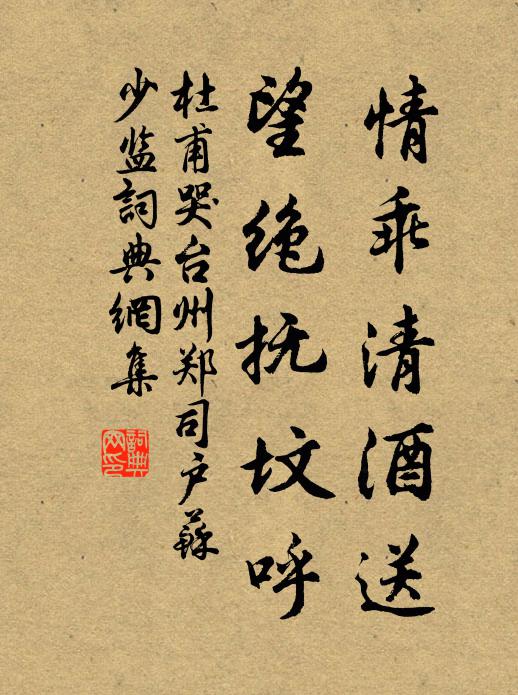 情乖清酒送
望绝抚坟呼
杜甫哭台州郑司户蘇
少监詞典網集
詞典
网印